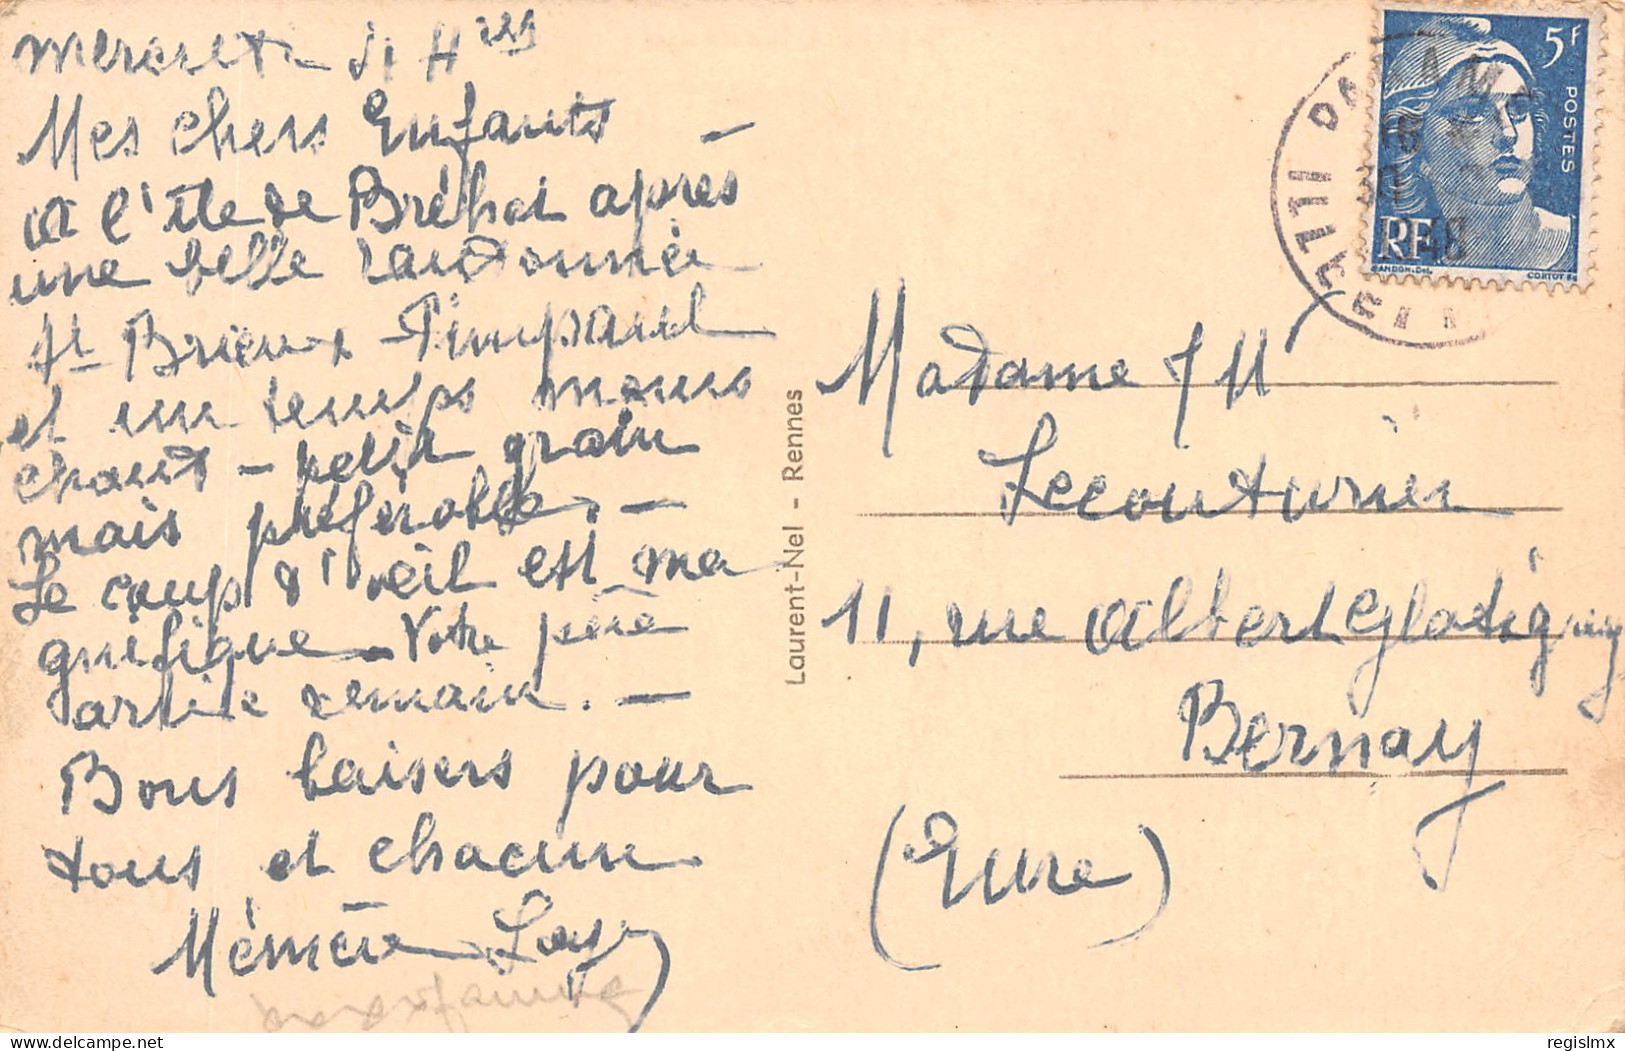 mercredi 21 Hres
Mes chers Enfants
à l'île de Bréhat après
une belle randonnée
St Brieux - Pimpaul
et un temps moins
chaud - petit grain
mais préférable. -
Le coup d'œil est ma
gnifique - Votre père
arrive demain. -
Bons baisers pour
tous et chacun
Mémère
Laurent-Nel - Rennes
5F
POSTES
RF
GANDON-Del.
CORTOT Sc
48
Madame & M
Lecouturier
11, rue Albert Glatigny
Bernay
(Eure)
delcampe.net
regislmx